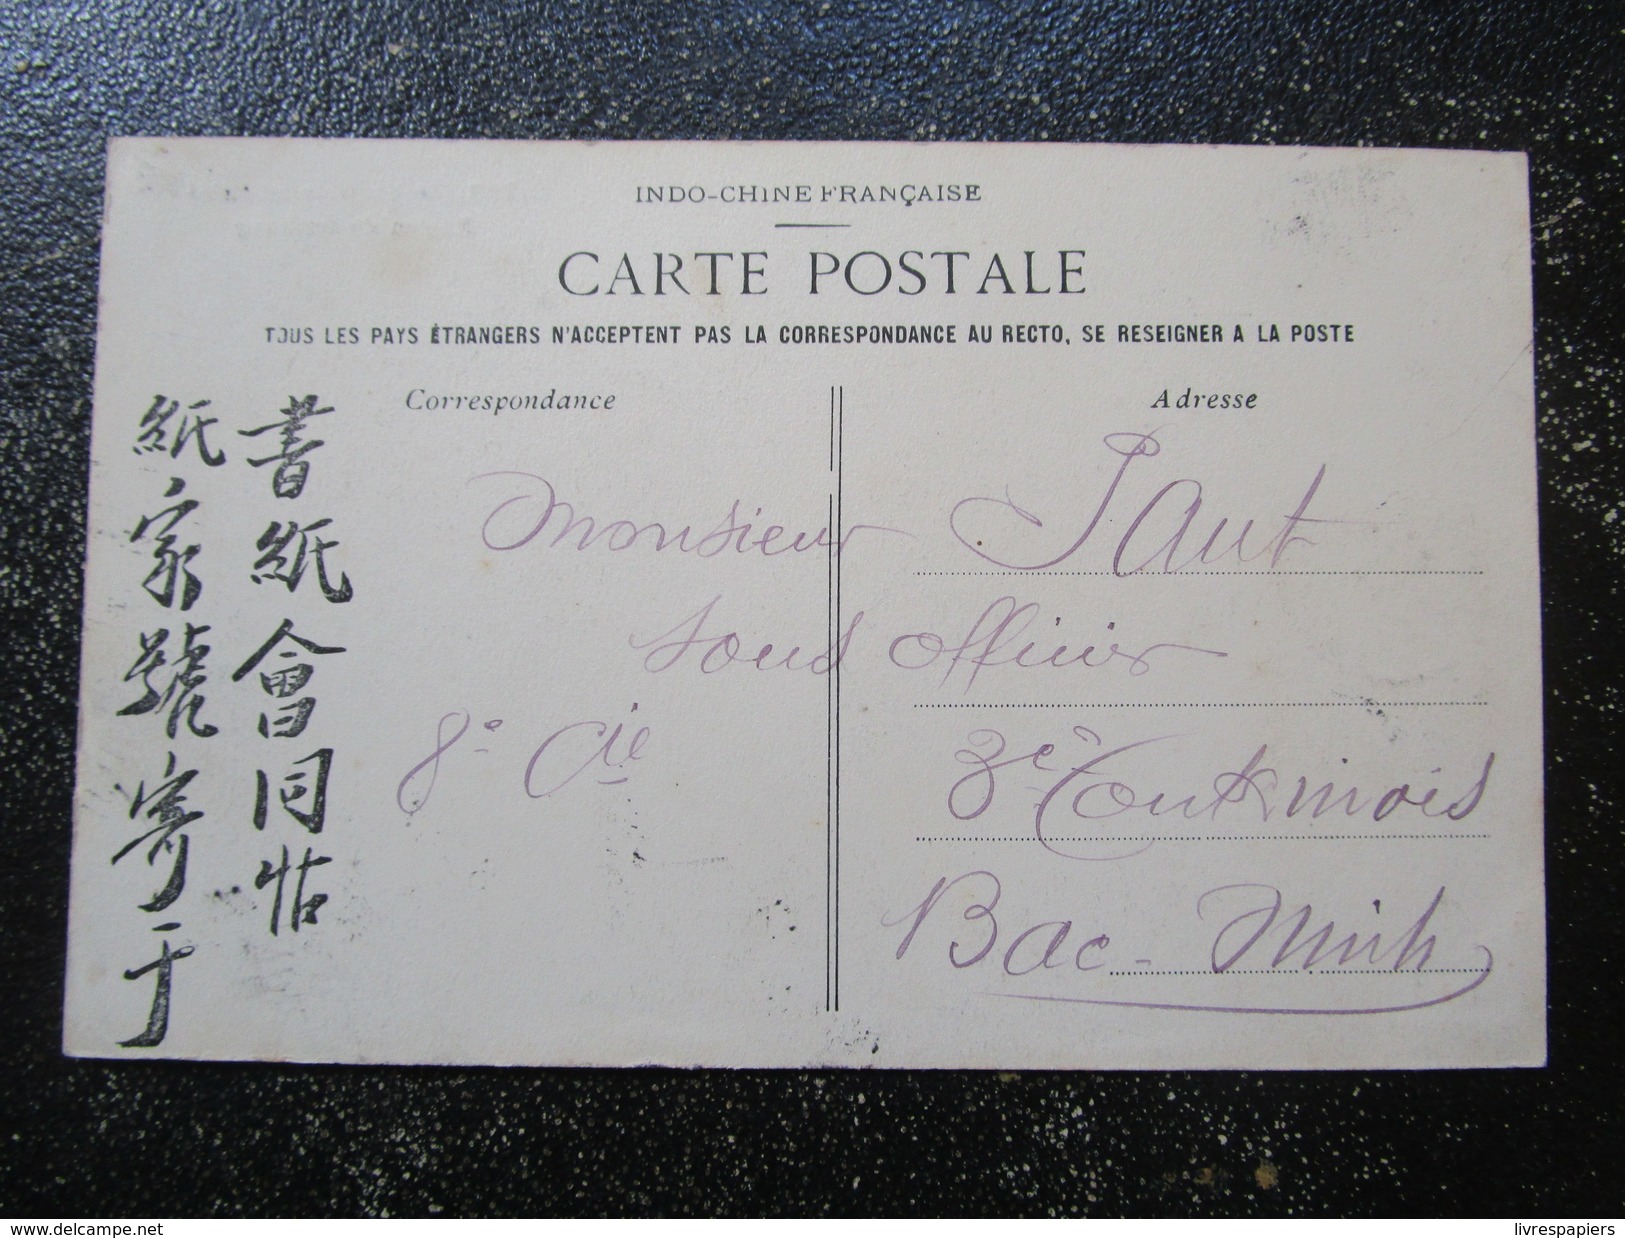 INDO-CHINE FRANÇAISE
CARTE POSTALE
TOUS LES PAYS ÉTRANGERS N'ACCEPTENT PAS LA CORRESPONDANCE AU RECTO, SE RESEIGNER A LA POSTE
Correspondance
Adresse
書紙會同帖
紙家號寄于
Monsieur Paut
Sous Officier
8e Cie
3e Tonkinois
Bac-Ninh
www.delcampe.net
livrespapiers